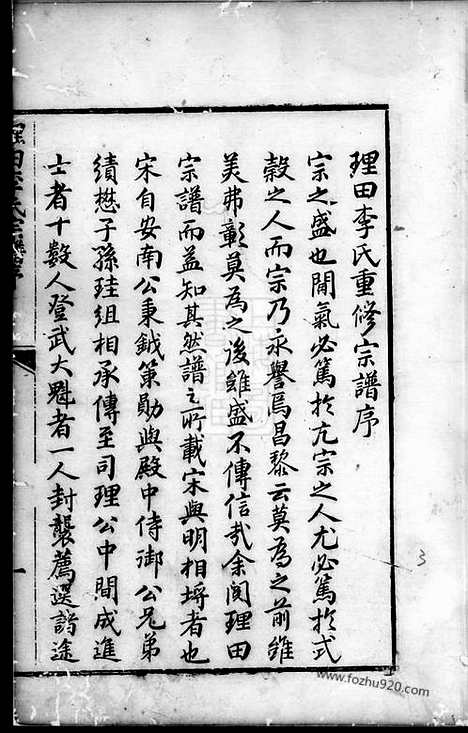 理田李氏重修宗譜序
宗之盛也閒氣必篤於亢宗之人尤必篤於式
榖之人而宗乃永譽焉昌黎云莫為之前雖
美弗彰莫為之後雖盛不傳信哉余閱理田
宗譜而益知其然譜之所載宋與明相埒者也
宋自安南公秉鉞策勛與殿中侍御公兄弟
績懋子孫珪組相承傳至司理公中間成進
士者十數人登武大魁者一人封襲薦選諸途
一
3
www.fozhu920.com